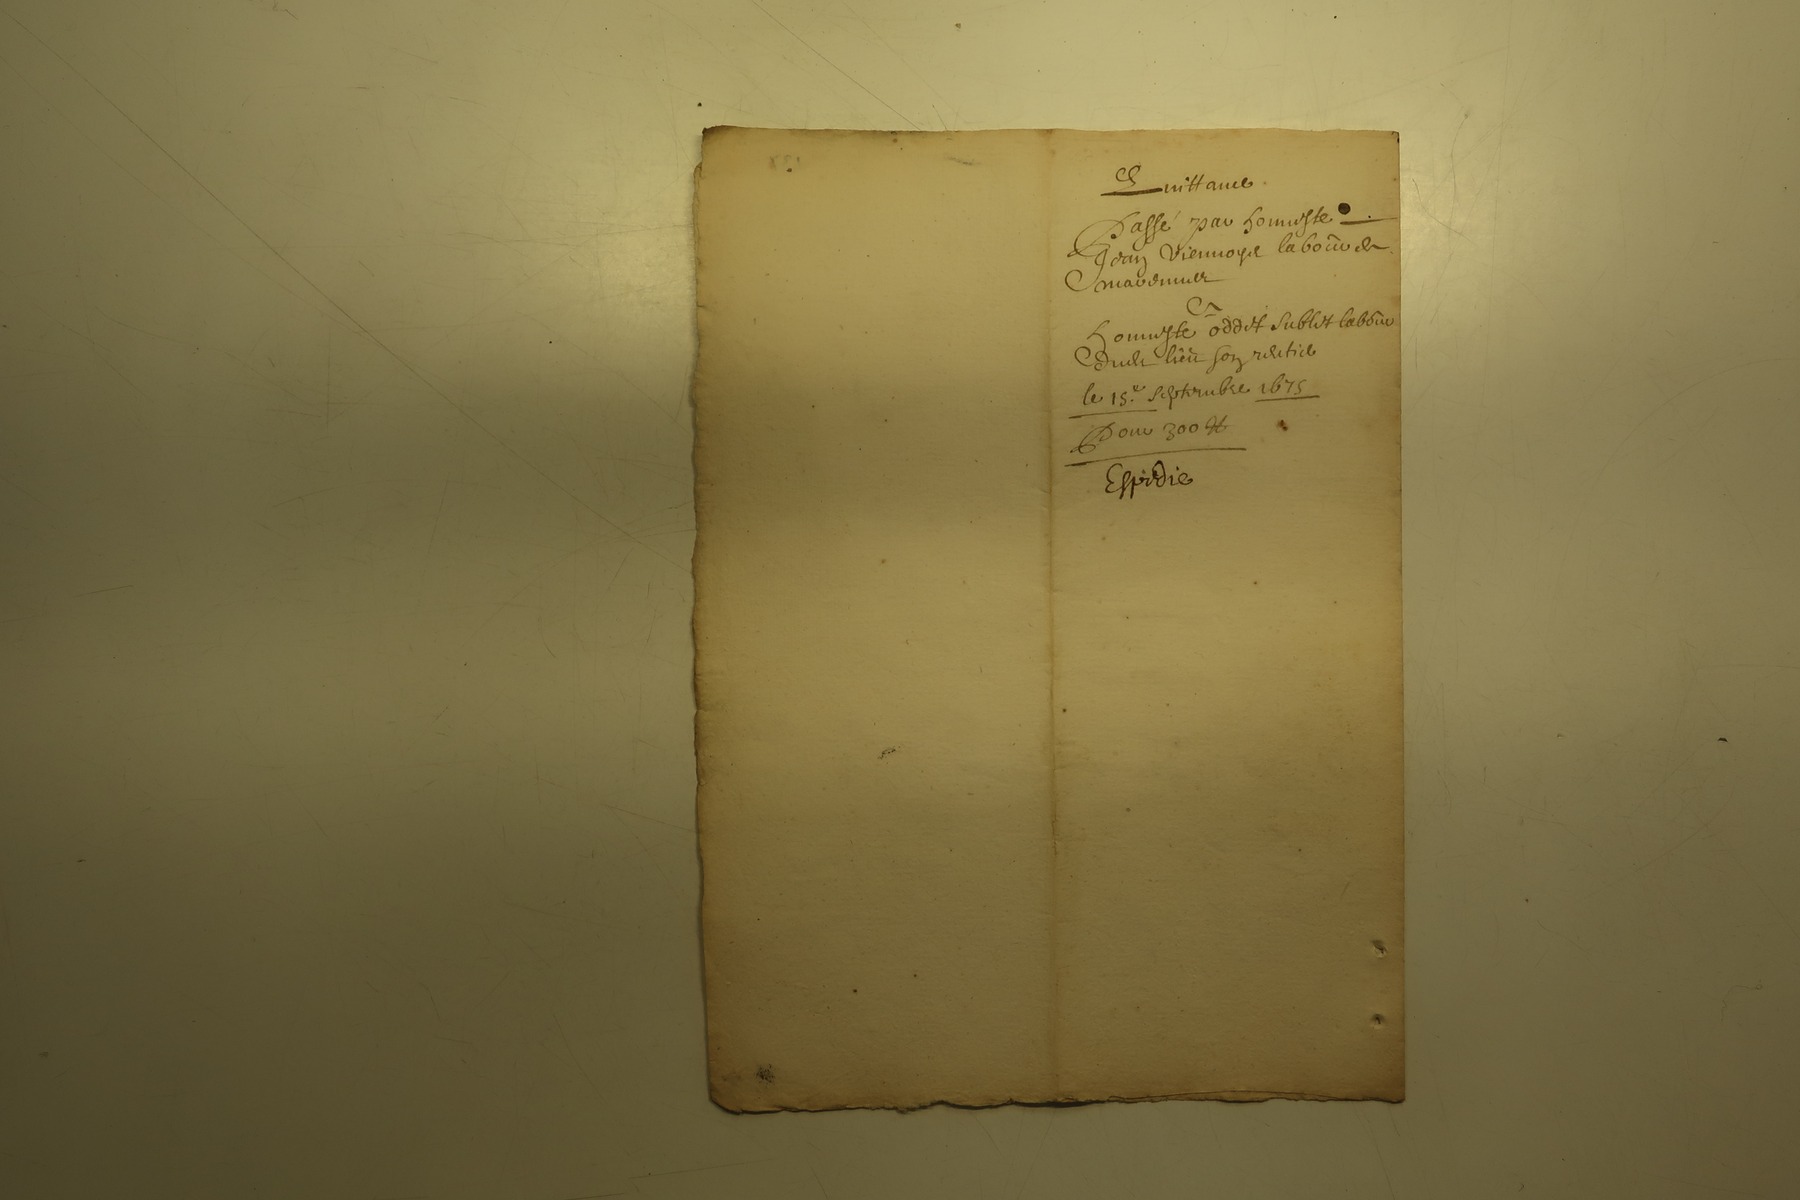 Quittance
Passé par honneste
Jean Viennoys labour de
marennes
A
honneste oddet sublet labour
dudt lieu son
le 15.e Septembre 1675
Pour 300 ₶
Expédié